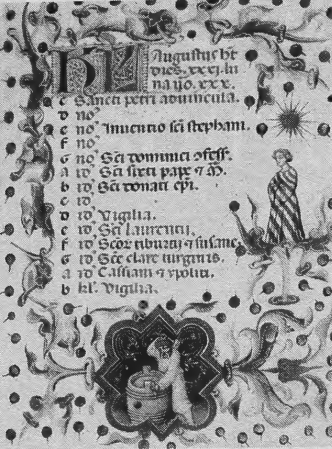 KL Augustus ht
dies .xxxi. lu
na ṽo. xxx.
c Sancti petri aduincula.
d no
e no Inuentio sci stephani.
f no
G no Sci dominici ofess.
a id Sci sixti pape & m.
b id Sci donati epi.
c id
d id Vigilia.
e id Sci laurentii.
f id Scor tiburtii & susanne
G id Sce clare uirginis.
a id Cassiani & ypoliti.
b kl. Vigilia.